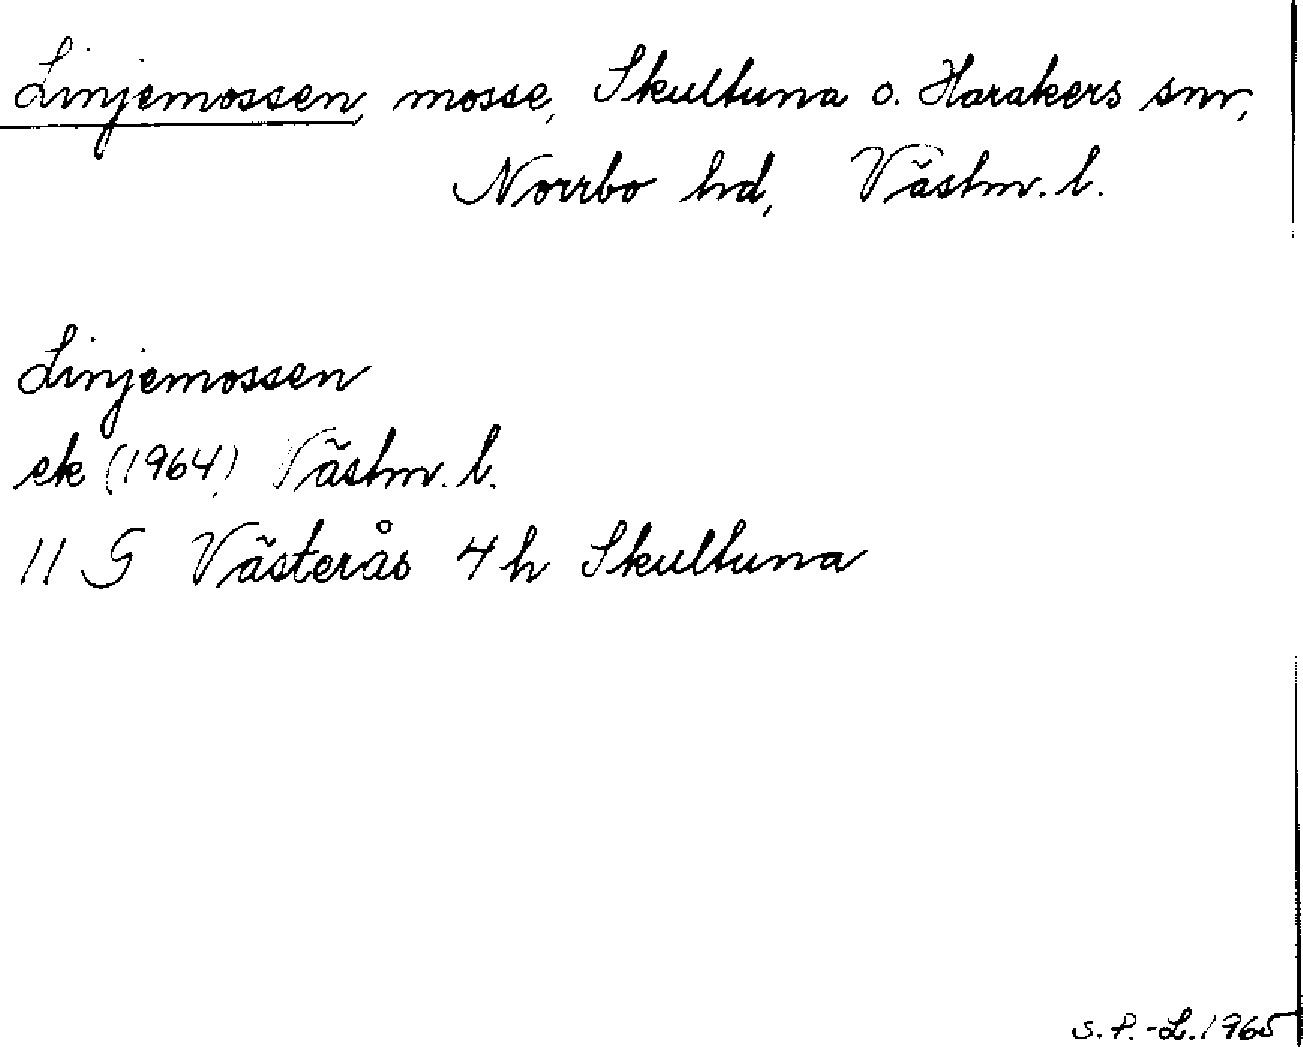 Linjemossen, mosse, Skultuna o. Harakers snr,
Norrbo hd, Västm. l.
Linjemossen
ek (1964) Västm. l.
11 G Västerås 4 h Skultuna
S. P.-L. 1965